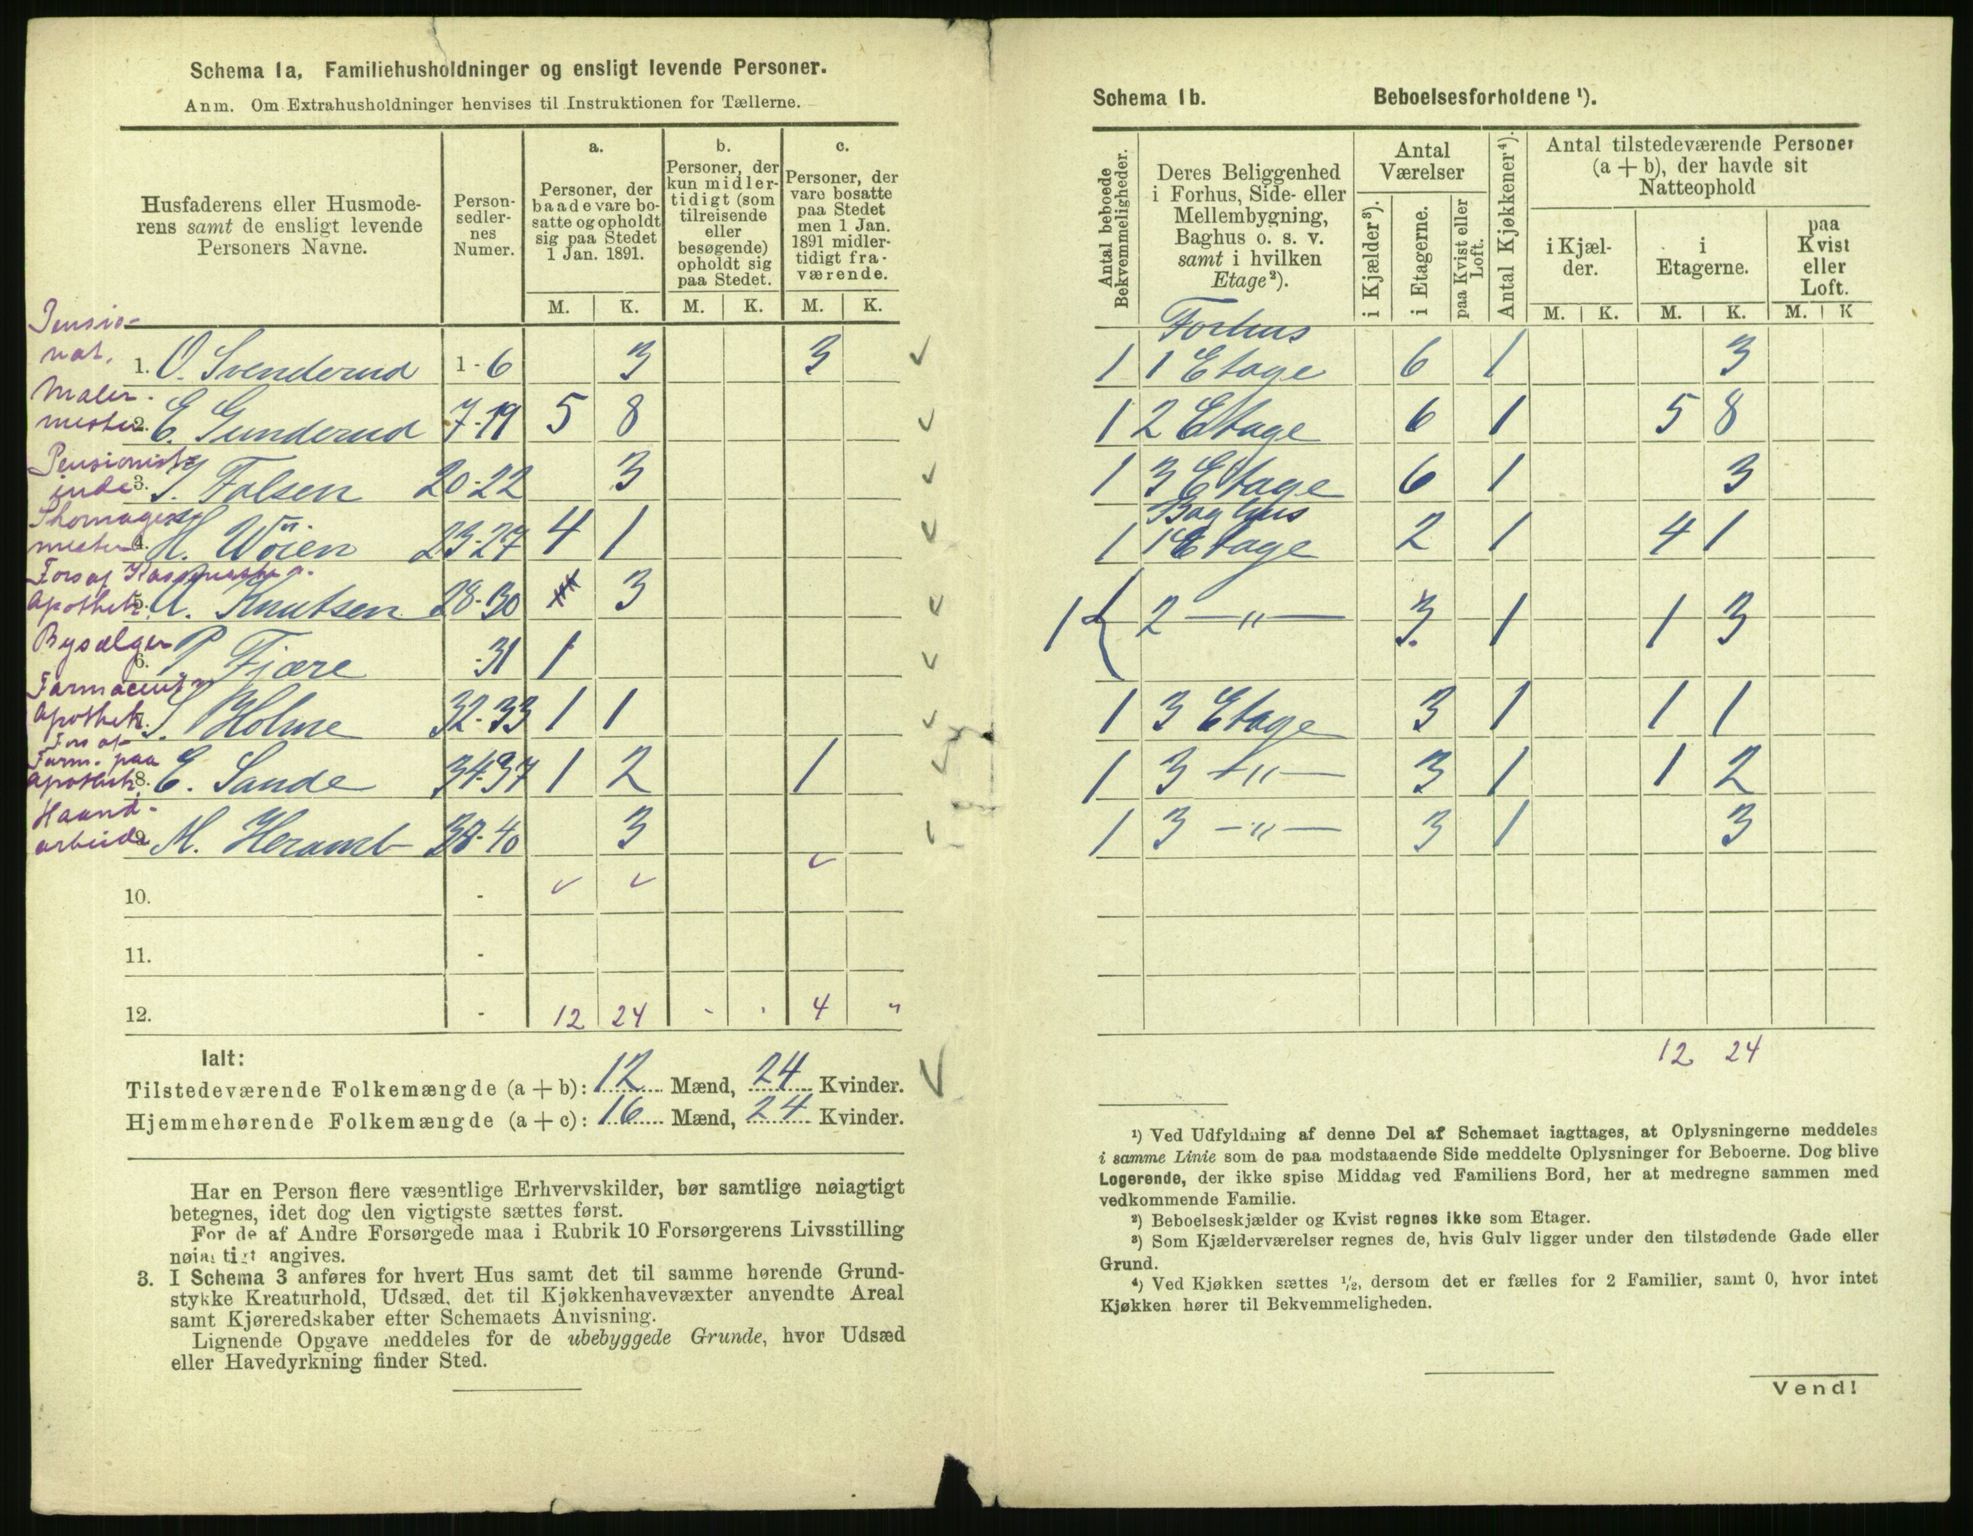 Schema 1a, Familiehusholdninger og ensligt levende Personer.
Anm. Om Extrahusholdninger henvises til Instruktionen for Tællerne.
Husfaderens eller Husmode-
rens samt de ensligt levende
Personers Navne.
Person-
sedler-
nes
Numer.
a.
Personer, der
baade vare bo-
satte og opholdt
sig paa Stedet
1 Jan. 1891.
b.
Personer, der
kun midler-
tidigt (som
tilreisende
eller
besøgende)
opholdt sig
paa Stedet.
c.
Personer, der
vare bosatte
paa Stedet
men 1 Jan.
1891 midler-
tidigt fra-
værende.
M. K. M. K. M. K.
Pensio-
nat.
1. O. Svenderud 1-6 3 3
Maler-
mester
2. E. Gunderud 7-19 5 8
Pensionist-
inde
3. J. Falsen 20-22 3
Skomager-
mester
4. H. Wöien 23-27 4 1
Fors af
Apothek
5. A. Knutsen 28-30 3
Bysælger
6. P Fjære -31 1
Farmaceut
Apothek
7. S. Holme 32-33 1 1
Fors af
Farm. paa
Apothek
8. E. Sande 34-37 1 2 1
Haand-
arbeide
9. M. Heramb 38-40 3
10. -
11. -
12. - 12 24 - - 4 "
Ialt:
Tilstedeværende Folkemængde (a + b): 12 Mænd, 24 Kvinder.
Hjemmehørende Folkemængde (a + c): 16 Mænd, 24 Kvinder.
Har en Person flere væsentlige Erhvervskilder, bør samtlige nøiagtigt
betegnes, idet dog den vigtigste sættes først.
For de af Andre Forsørgede maa i Rubrik 10 Forsørgerens Livsstilling
nøiagtigt angives.
3. I Schema 3 anføres for hvert Hus samt det til samme hørende Grund-
stykke Kreaturhold, Udsæd, det til Kjøkkenhavevæxter anvendte Areal
samt Kjøreredskaber efter Schemaets Anvisning.
Lignende Opgave meddeles for de ubebyggede Grunde, hvor Udsæd
eller Havedyrkning finder Sted.
Schema 1b. Beboelsesforholdene ¹).
Antal beboede
Bekvemmeligheder.
Deres Beliggenhed
i Forhus, Side- eller
Mellembygning,
Baghus o. s. v.
samt i hvilken
Etage ²).
Antal
Værelser
i Kjælder ³).
i Etagerne.
paa Kvist eller
Loft.
Antal Kjøkkener ⁴).
Antal tilstedeværende Personer
(a + b), der havde sit
Natteophold
i Kjæl-
der.
i
Etagerne.
paa
Kvist
eller
Loft.
M. K. M. K. M. K
Forhus
1 1 Etage 6 1 3
1 2 Etage 6 1 5 8
1 3 Etage 6 1 3
Baghus
1 1 Etage 2 1 4 1
1 { 2 —"— 3. 1 1 3
1 3 Etage 3 1 1 1
1 3 —"— 3 1 1 2
1 3 —"— 3 1 3
12 24
¹) Ved Udfyldning af denne Del af Schemaet iagttages, at Oplysningerne meddeles
i samme Linie som de paa modstaaende Side meddelte Oplysninger for Beboerne. Dog blive
Logerende, der ikke spise Middag ved Familiens Bord, her at medregne sammen med
vedkommende Familie.
²) Beboelseskjælder og Kvist regnes ikke som Etager.
³) Som Kjælderværelser regnes de, hvis Gulv ligger under den tilstødende Gade eller
Grund.
⁴) Ved Kjøkken sættes ½, dersom det er fælles for 2 Familier, samt 0, hvor intet
Kjøkken hører til Bekvemmeligheden.
Vend!